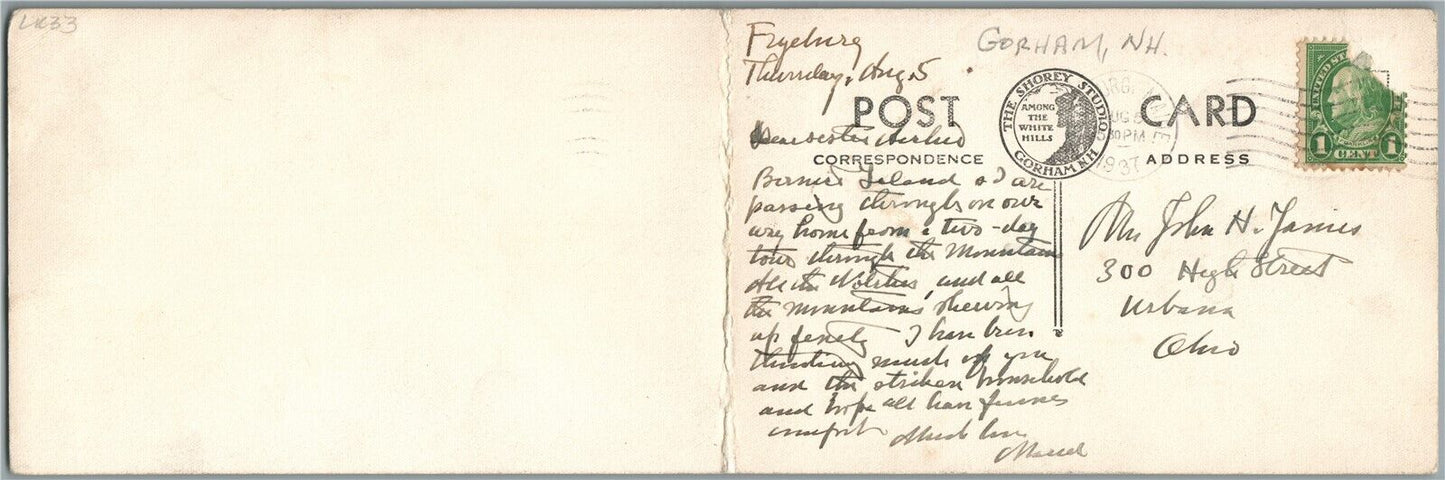 LR33
Fryeburg
Thursday, Aug 5
GORHAM, NH.
POST CARD
THE SHOREY STUDIO
AMONG
THE
WHITE
HILLS
GORHAM N.H.
AUG 5
30 PM
1937
UNITED ST
1 CENT 1
CORRESPONDENCE
ADDRESS
Bernice Leland & I are
passing through on our
way home from a two-day
tour through the Mountain
and all
the mountains showing
up finely I have been
thinking much of you
and the striken household
and hope all have
comfort Much love
Mr John H. James
300 High Street
Urbana
Ohio